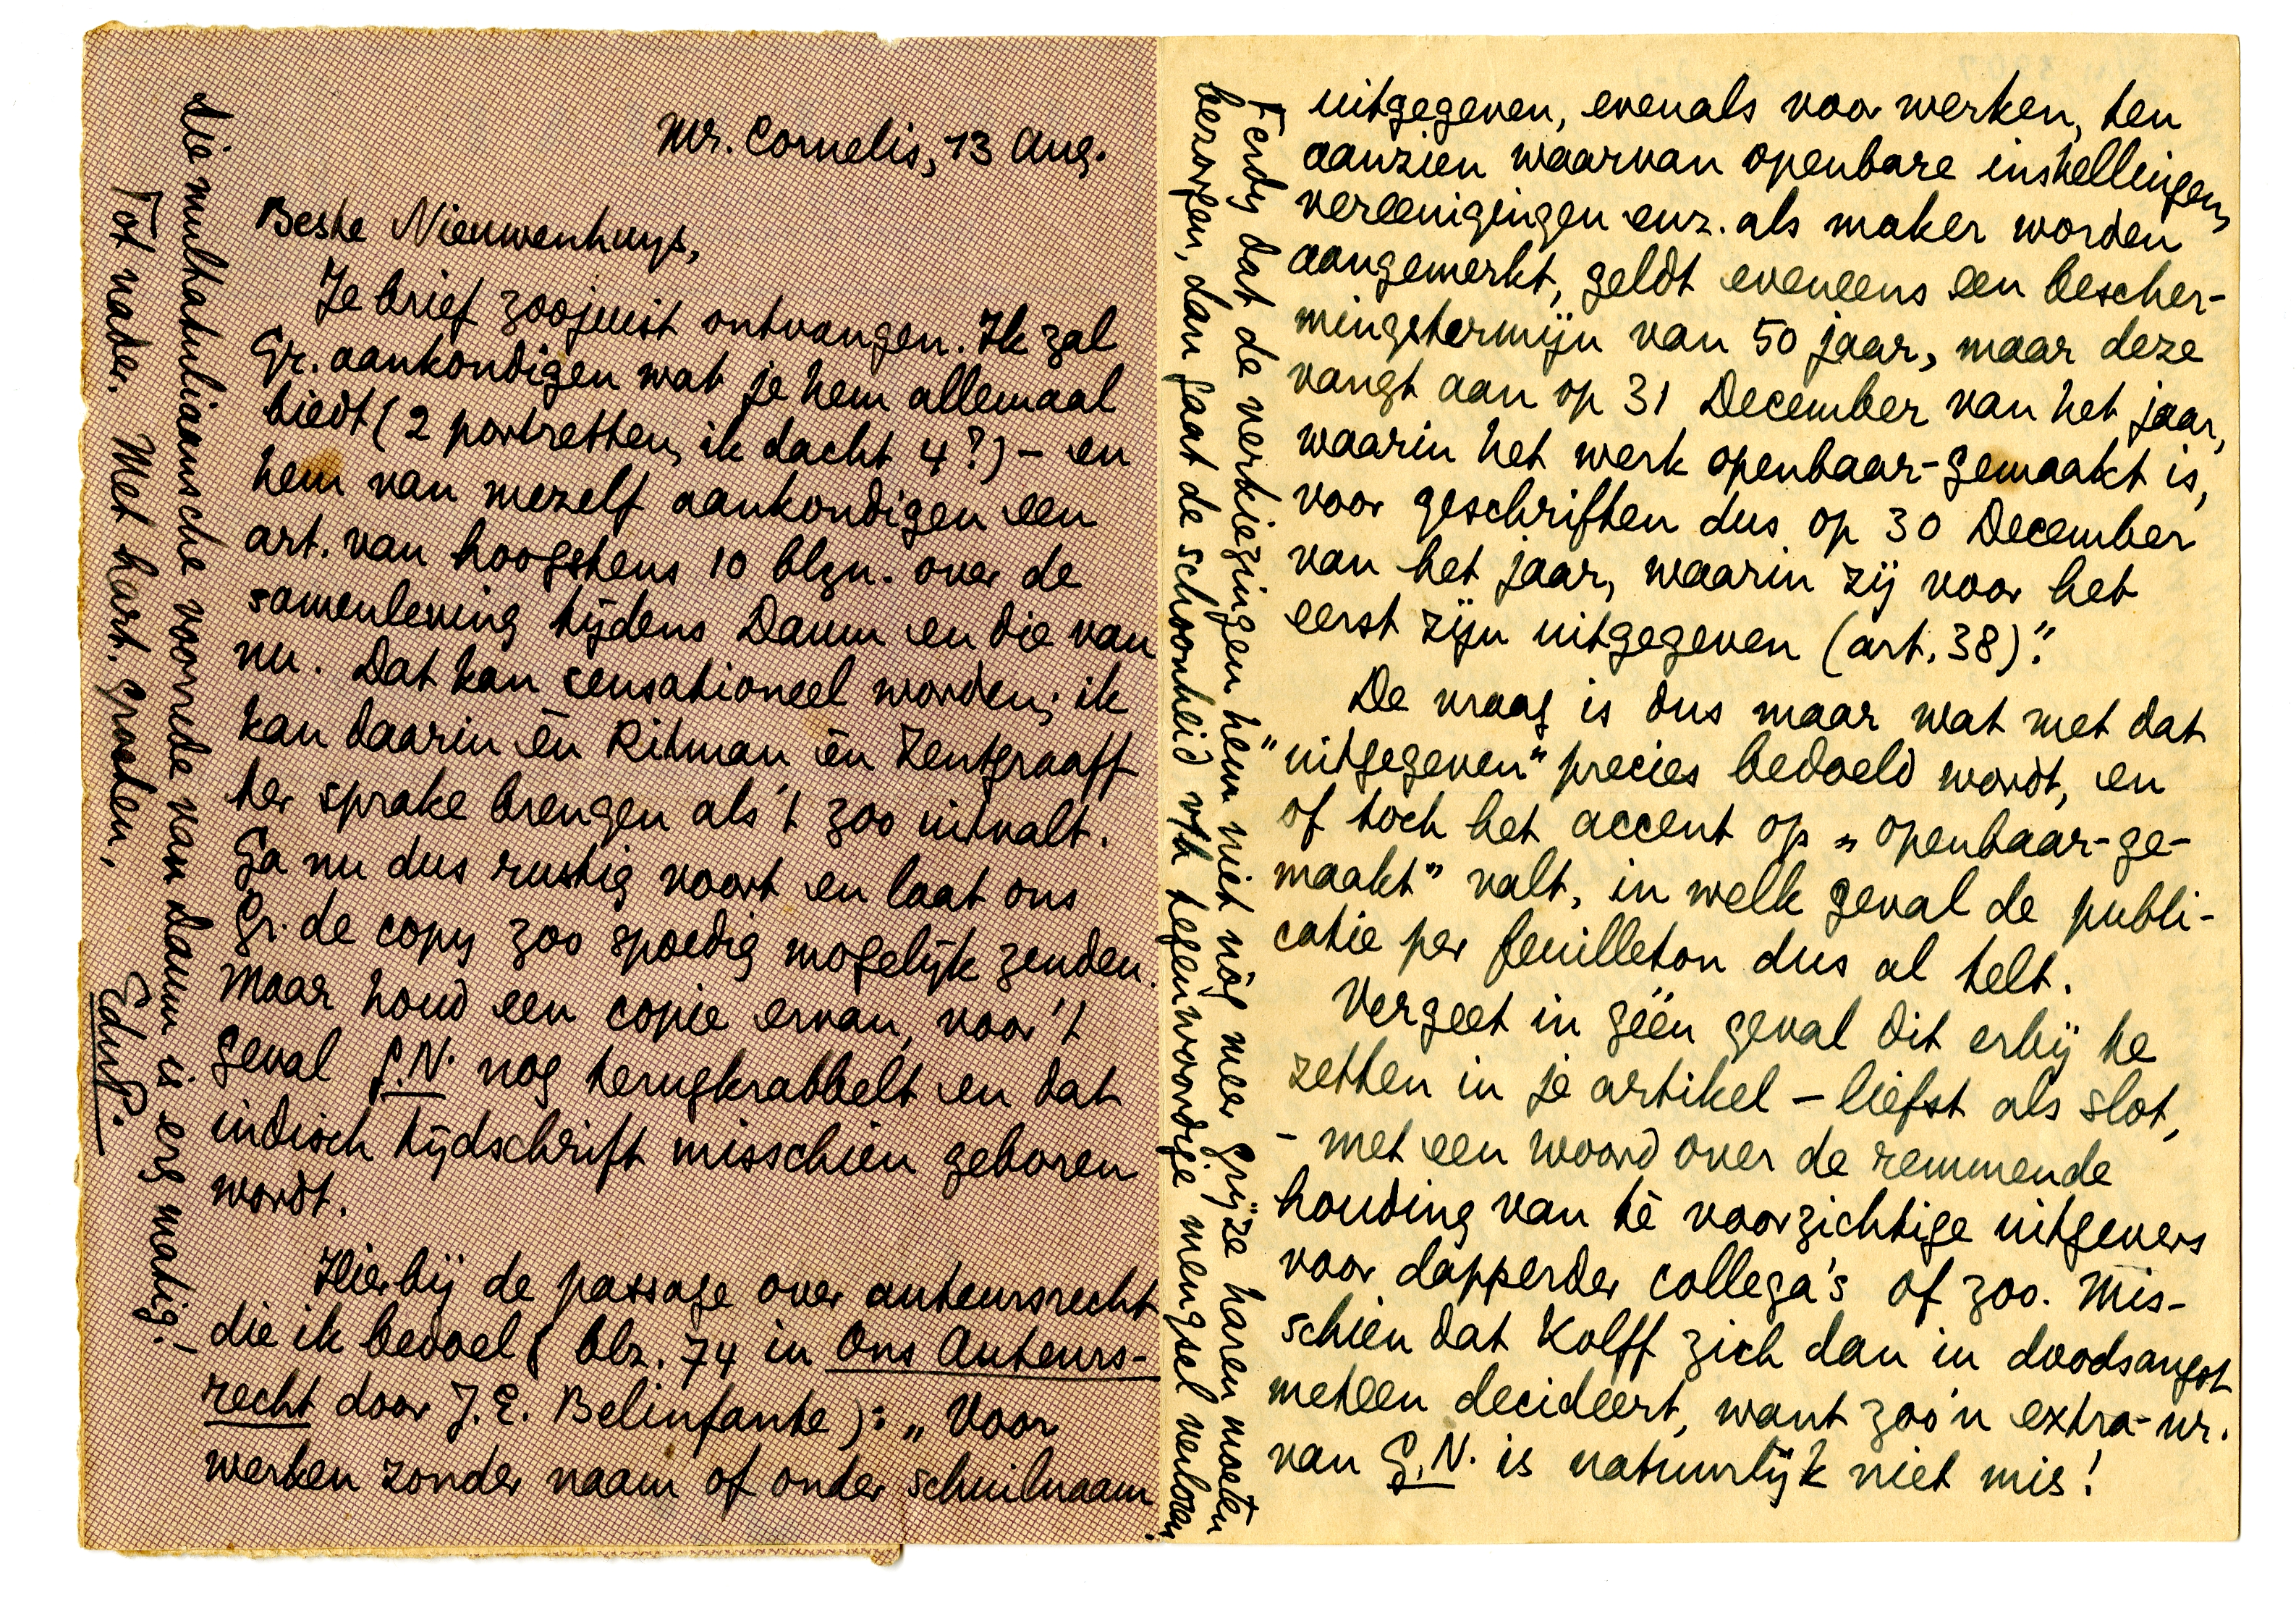 Mr. Cornelis, 13 Aug.
Beste Nieuwenhuys,
Je brief zoojuist ontvangen. Ik zal
Gr. aankondigen wat je hem allemaal
biedt (2 portretten, ik dacht 4?) – en
hem van mezelf aankondigen een
art. van hoogstens 10 blzn. over de
samenleving tijdens Daum en die van
nu. Dat kan sensationeel worden; ik
kan daarin én Ritman én Zentgraaff
ter sprake brengen als 't zoo uitvalt.
Ga nu dus rustig voort en laat ons
Gr. de copy zoo spoedig mogelijk zenden.
Maar houd een copie ervan, voor 't
geval G.N. nog terugkrabbelt en dat
indisch tijdschrift misschien geboren
wordt.
Hierbij de passage over auteursrecht
die ik bedoel (blz. 74 in Ons Auteurs-
recht door J.E. Belinfante): „Voor
werken zonder naam of onder schuilnaam
uitgegeven, evenals voor werken, ten
aanzien waarvan openbare instellingen,
vereenigingen enz. als maker worden
aangemerkt, geldt eveneens een bescher-
mingstermijn van 50 jaar, maar deze
vangt aan op 31 December van het jaar,
waarin het werk openbaar-gemaakt is,
voor geschriften dus op 30 December
van het jaar, waarin zij voor het
eerst zijn uitgegeven (art. 38)."
De vraag is dus maar wat met dat
"uitgegeven" precies bedoeld wordt, en
of toch het accent op „openbaar-ge-
maakt" valt, in welk geval de publi-
catie per feuilleton dus al telt.
Vergeet in géén geval dit erbij te
zetten in je artikel – liefst als slot,
– met een woord over de remmende
houding van té voorzichtige uitgevers
voor dapperder collega's of zoo. Mis-
schien dat Kolff zich dan in doodsangst
meteen decideert, want zoo'n extra-nr.
van G.N. is natuurlijk niet mis!
Ferdy dat de verkiezingen hem niet nóg meer grijze haren moeten
bezorgen, dan gaat de schoonheid v/h tegenwoordige mengsel verloren
die multatuliaansche voorrede van Daum is erg matig. –
Tot nader. Met hart. groeten,
EduP.